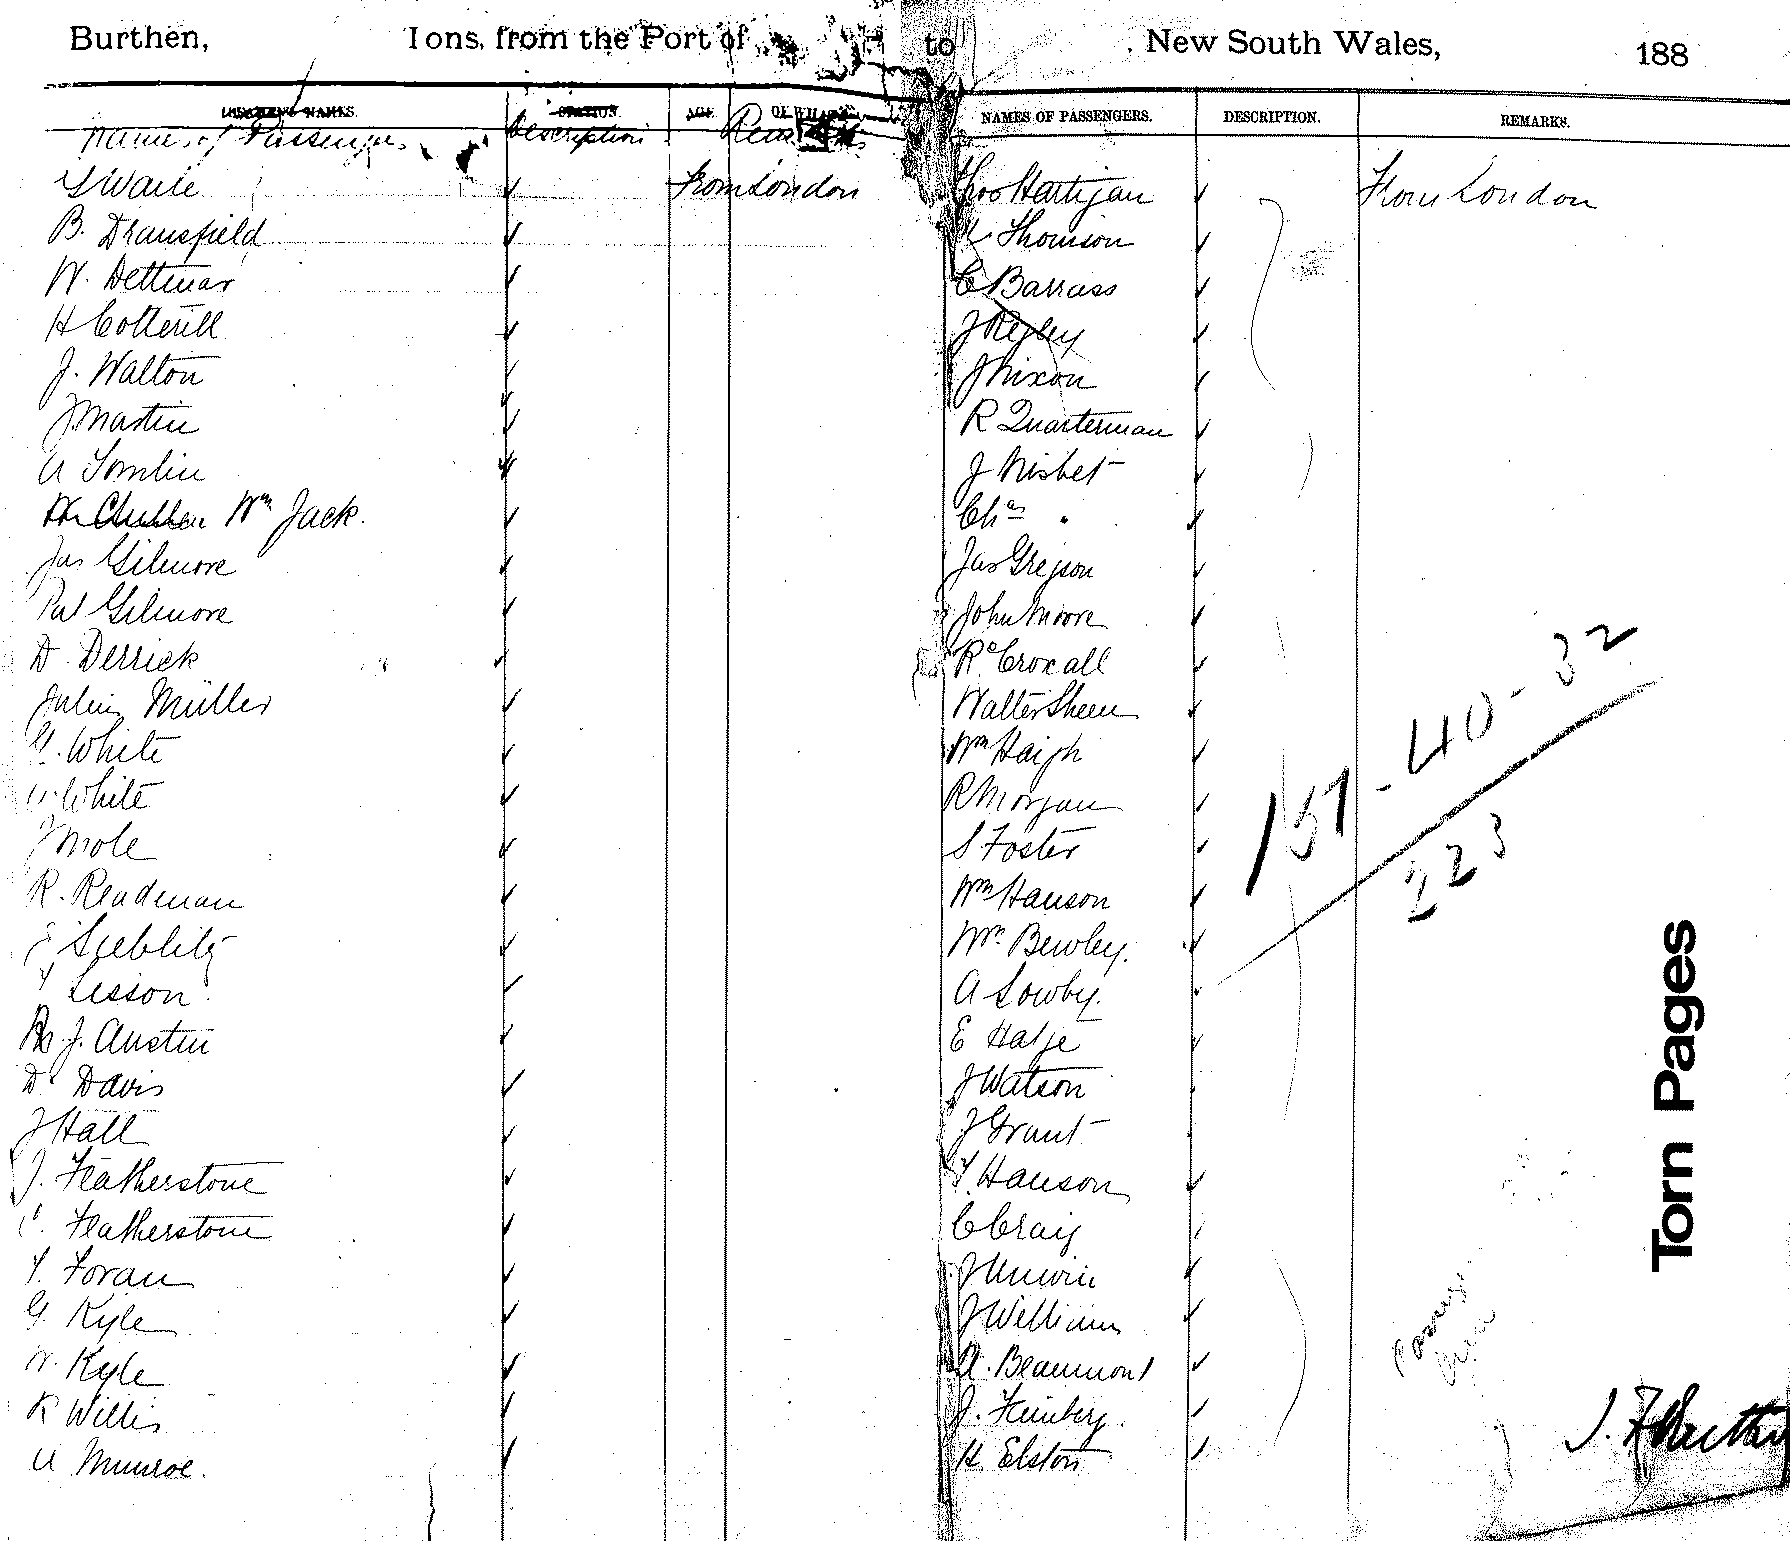 Burthen, Tons, from the Port of to New South Wales, 188
NAMES. STATION. AGE. OF WHAT
Names of Passengers Description Remarks
Waile From London
B. Dransfield
W. Dettmar
H Cotterill
J. Walton
J Martin
A Tomlin
Wm Jack.
Jas Gilmore
Pat Gilmore
D. Derrick
Julius Müller
G. White
White
J Mole
R. Readman
Sisson
J. Austin
D. Davis
J Hall
J. Featherstone
Featherstone
T. Foran
G. Kyle
W. Kyle
R Willis
A Munroe.
NAMES OF PASSENGERS. DESCRIPTION. REMARKS.
Thos Hartigan From London
Thomson
C Barrass
J Nixon
R Quarterman
J Nisbet
Chas "
Jas Gregson
John Moore
Rd Croxall
Walter Sheen
Wm Haigh
R Morgan
S Foster
Wm Hanson
Wm Bewley.
A Sowby.
E Hatje
J Watson
J Grant
T. Hanson
C Craig
J Unwin
J Williams
A. Beaumont
J. Feinberg
H. Elston
151-40-32
223
Torn Pages